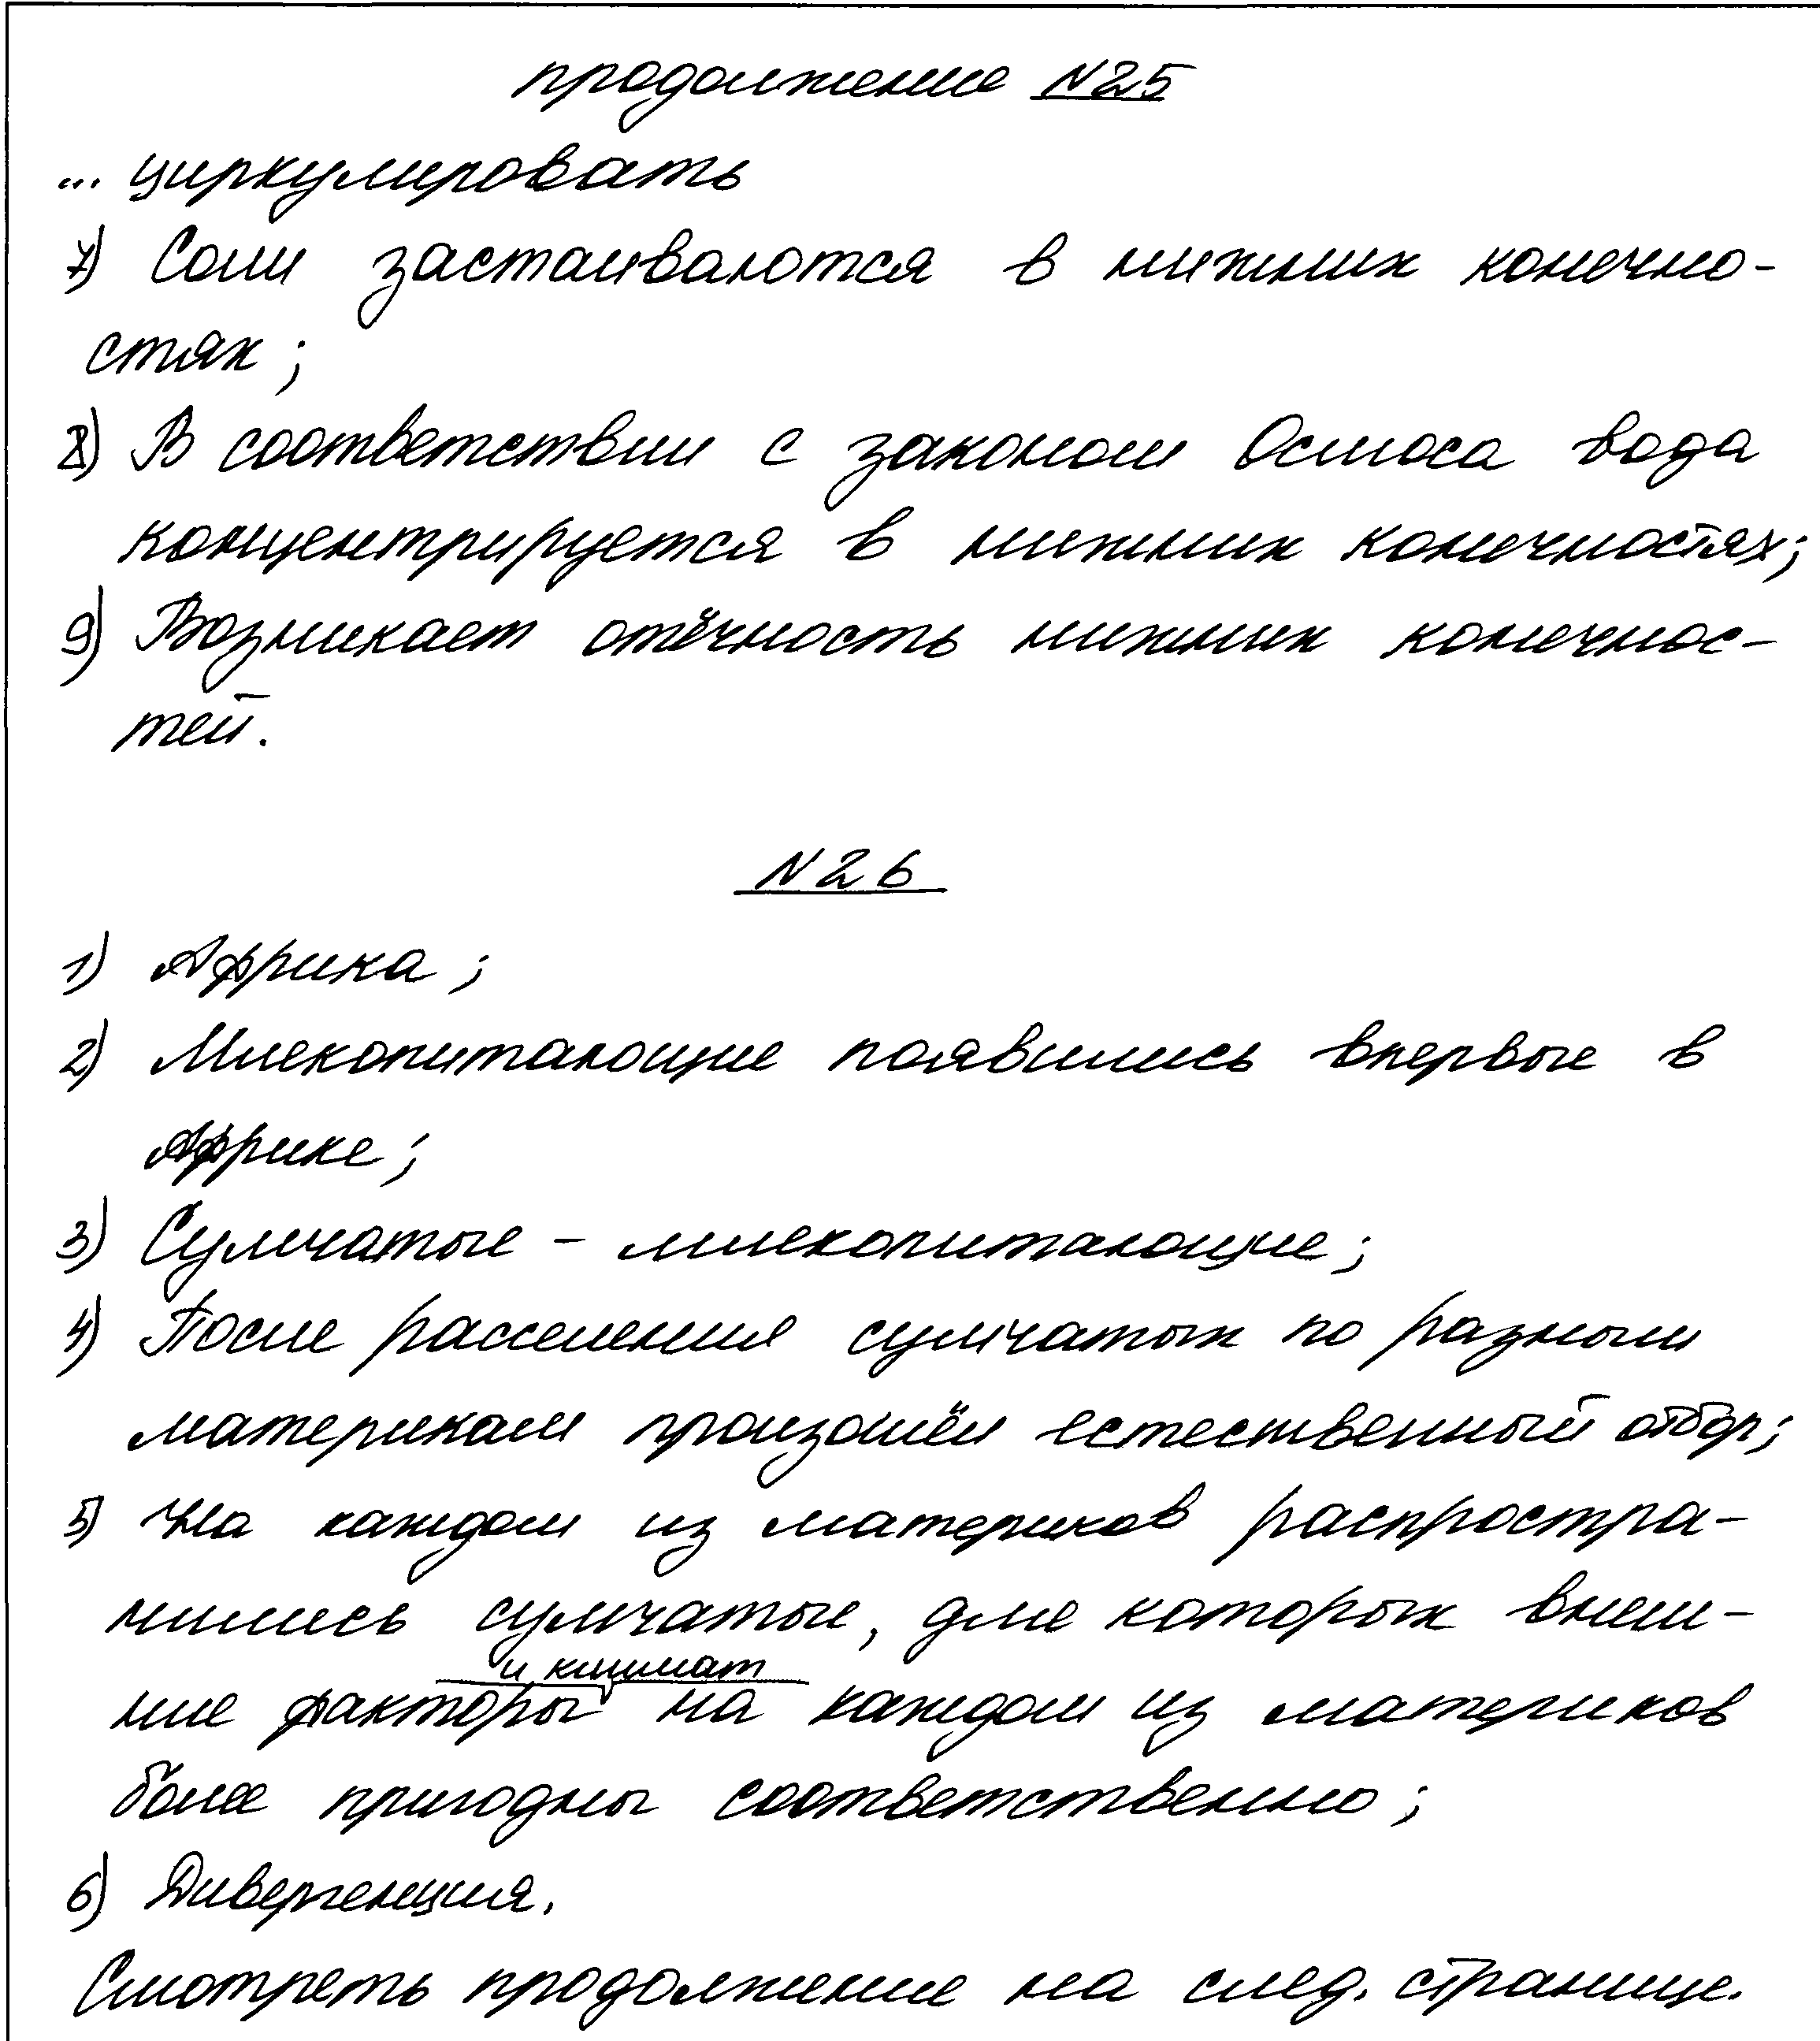 продолжение №25
... циркулировать
7) Соли застаиваются в нижних конечно-
стях;
8) В соответствии с законом Осмоса вода
концентрируется в нижних конечностях;
9) Возникает отёчность нижних конечнос-
тей.
№26
1) Африка;
2) Млекопитающие появились впервые в
Африке;
3) Сумчатые - млекопитающие;
4) После расселения сумчатых по разным
материкам произошёл естественный отбор;
5) На каждом из материков распростра-
нились сумчатые, для которых внеш-
и климат
ние факторы на каждом из материков
более пригодны соответственно;
6) Дивергенция.
Смотреть продолжение на след. странице.